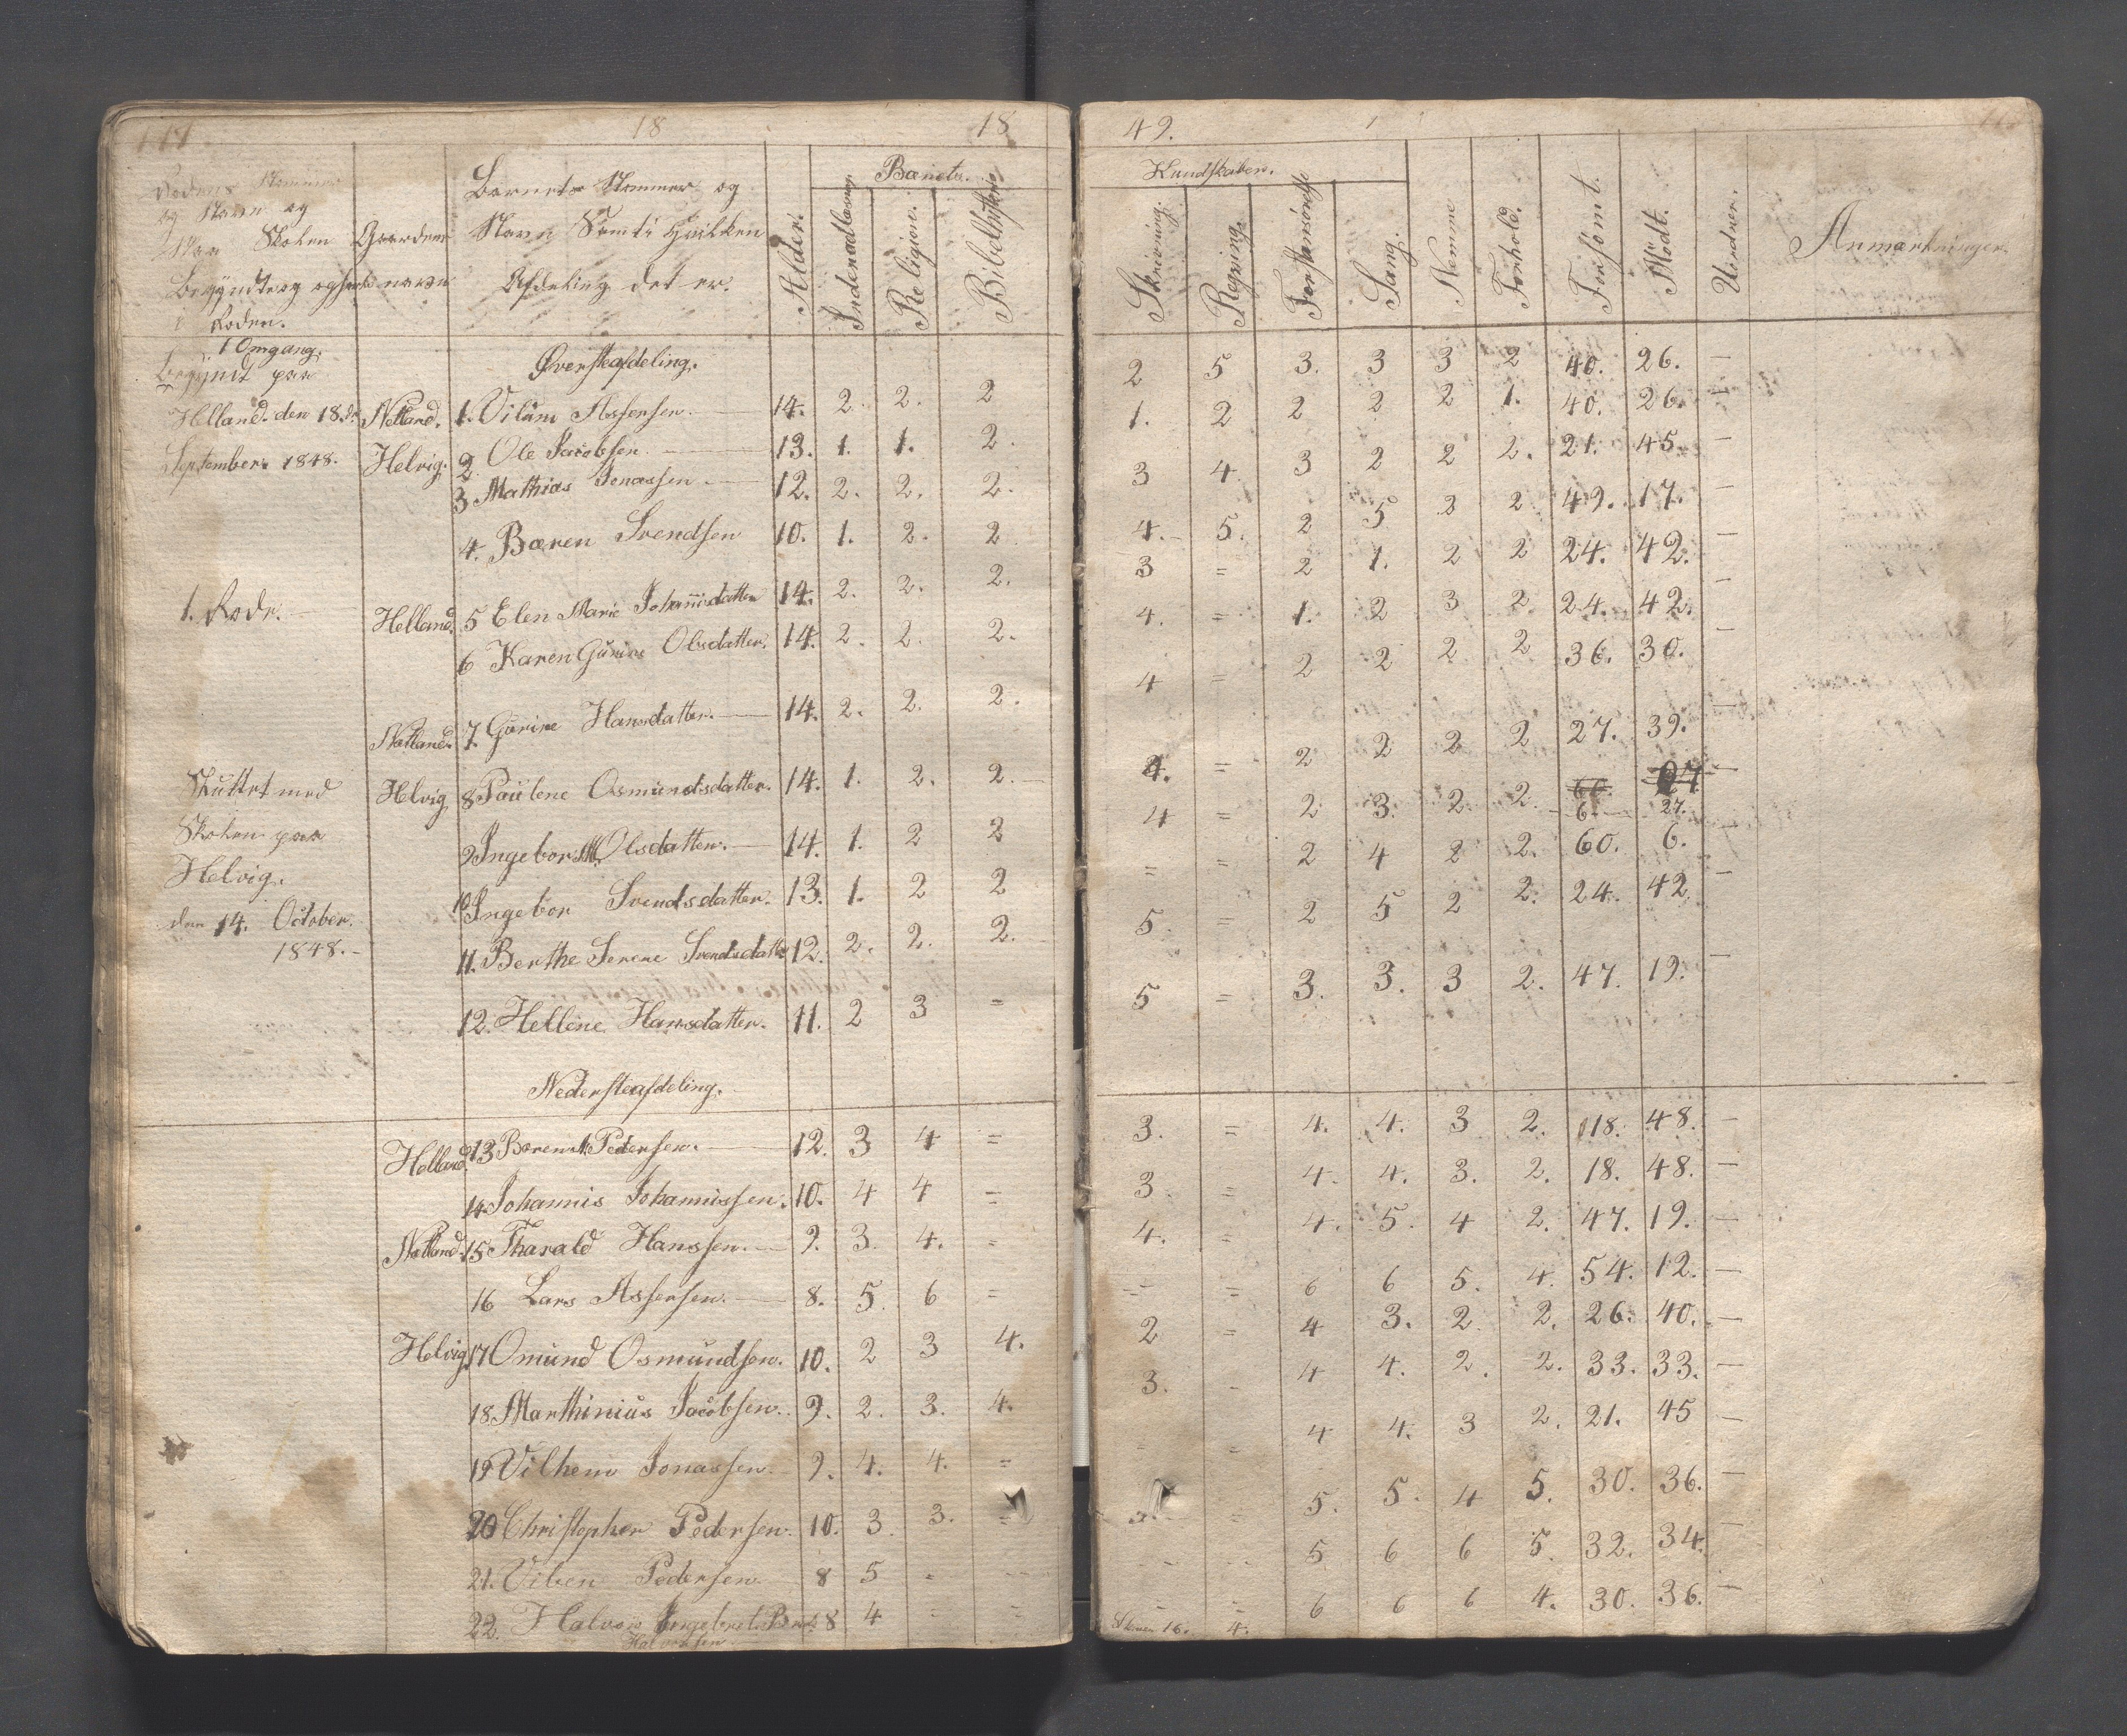 18 18
og Navn og
Skolen
Begyndt og
Roden.
Gaardens
navn
Barnets Nommer og
Navn Samt i hvilken
Afdeling det er.
Alder.
Barnets
Indenadlæsning
Religion.
Bibelhistorie
1 Omgang.
Begyndt paa
Øversteafdeling.
Helland. den 18de Natland. 1. Vilüm Assersen. 14. 2. 2. 2
September 1848. Helvig. 2. Ole Jacobsen. 13. 1. 1. 2.
3 Mathias Jonassen 12. 2. 2. 2.
4. Bæren Svendsen 10. 1. 2. 2
1. Rode. Helland. 5 Elen Marie Johannisdatter 14. 2. 2. 2.
6 Karen Gürine Olsdatter. 14. 2. 2. 2.
Natland. 7. Gürine Hansdatter. 14. 2. 2. 2.
Skuttet med Helvig 8 Paülene Osmündsdatter. 14. 1. 2. 2.
Skolen paa
9 Ingebor M. Olsdatter. 14. 1. 2 2
Helvig.
10 Ingebor Svendsdatter. 13. 1. 2 2
den 14. October.
1848.
11. Berthe Serene Svendsdatter 12. 2. 2. 2.
12. Hellene Hansdatter. 11. 2 3 =
Nedersteafdeling.
Helland. 13 Berent Pedersen. 12. 3 4 =
14. Johannis Johannissen. 10. 4 4 =
Natland. 15 Tharald Hanssen. 9. 3. 4. =
16 Lars Assersen. 8. 5. 6 =
Helvig 17 Omünd Osmündsen. 10. 2 3 4.
18. Marthiniüs Jacobsen. 9. 2. 3. 4.
19 Vilhem Jonassen. 9. 4. 4. =
20 Christopher Pedersen. 10. 3. 3. =
21. Viben Pedersen 8 5 =
22. Halvor Ingebret Bernt 8 4 = =
Halvorsen
49.
Kundskaber.
Skrivning.
Regning.
Forstansövelse
Sang.
Nemme
Forhold.
Forsömt.
Mödt.
Uindner.
Anmærkninger.
2 5 3. 3 3 2 40. 26. —
1. 2 2 2 2 1. 40. 26. —
3 4. 3 2 2 2. 21. 45. —
4. 5. 2 5 3 2 49. 17. —
3 = 2 1. 2 2 24. 42. —
4. = 1. 2 3 2. 24. 42. —
4 = 2 2 2 2 36. 30. —
4. = 2 2 2 2 27. 39. —
4 = 2. 3. 2. 2. 6. 27. —
= = 2 4 2 2. 60. 6. —
5. = 2 5 2 2. 24. 42. —
5 = 3. 3. 3 2. 47. 19. —
3. = 4. 4. 3 2. 18. 48. —
3 = 4. 4. 3. 2. 18. 48. —
4. = 4. 5. 4 2. 47. 19. —
= = 6 6 5. 4. 54. 12. —
2 = 4 3. 2. 2. 26. 40. —
3. = 4 4. 2. 2. 33. 33. —
= = 4 4. 3 2. 21. 45 —
= 5. 5. 4 5. 30. 36. —
5 6 6 5. 32. 34. —
= = 6 6 6 4. 30. 36. —
16. 4.